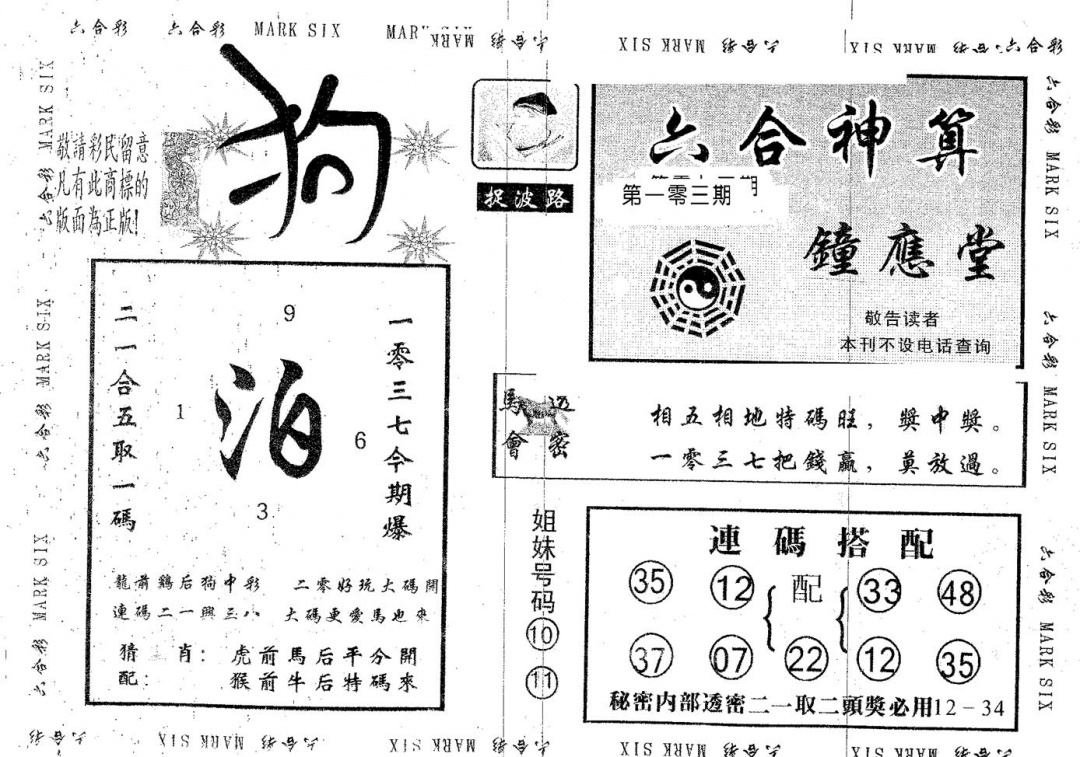 六合彩 六合彩 MARK SIX MAR MARK 六合彩
MARK SIX 六合彩
MARK SIX 六合彩 六合彩
狗
敬請彩民留意
凡有此商標的
版面為正版!
捉波路
六合神算
第一零三期
鐘應堂
敬告读者
本刊不设电话查询
二一合五取一碼
9
1
泊
6
3
一零三七今期爆
龍前鷄后狗中彩 二零好玩大碼開
連碼二一興三八 大碼更愛馬也來
猜肖: 虎前馬后平分開
配: 猴前牛后特碼來
馬會 透密
相五相地特碼旺,獎中獎。
一零三七把錢贏,莫放過。
姐妹号码
10
11
連碼搭配
35 12 配 33 48
37 07 22 12 35
秘密内部透密二一取二頭獎必用12-34
六合彩 MARK SIX
六合彩 MARK SIX
六合彩 MARK SIX
六合彩 MARK SIX
六合彩 MARK SIX
六合彩 MARK SIX
六合彩 MARK SIX 六合彩
MARK SIX 六合彩
MARK SIX 六合彩
MARK SIX 六合彩